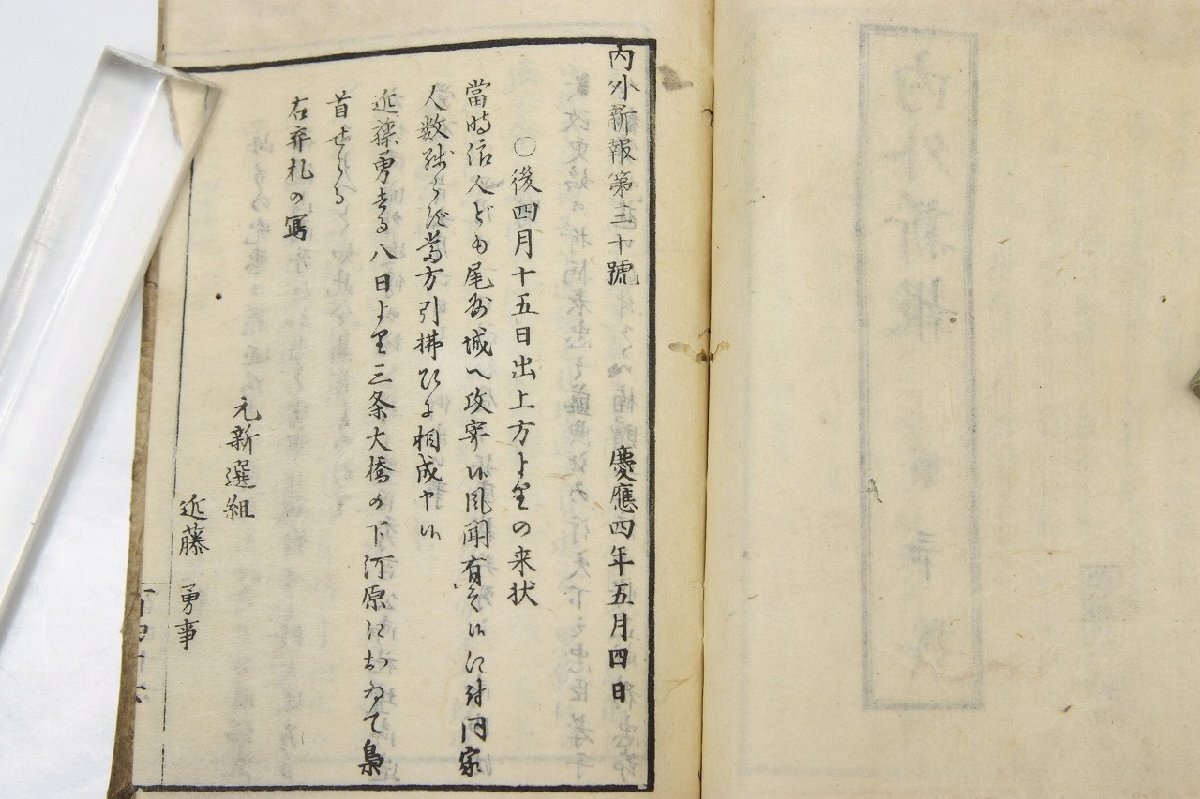 内外新報第三十號 慶應四年五月四日
〇後四月十五日出上方よりの来状
當時浪人ども尾州城へ攻寄候風聞有之候に付同家
人数残らず當方引拂ひに相成申候
近藤勇去る八日より三条大橋の下河原において梟
首せらる
右弃札の寫
元新選組
近藤勇事
内外新報